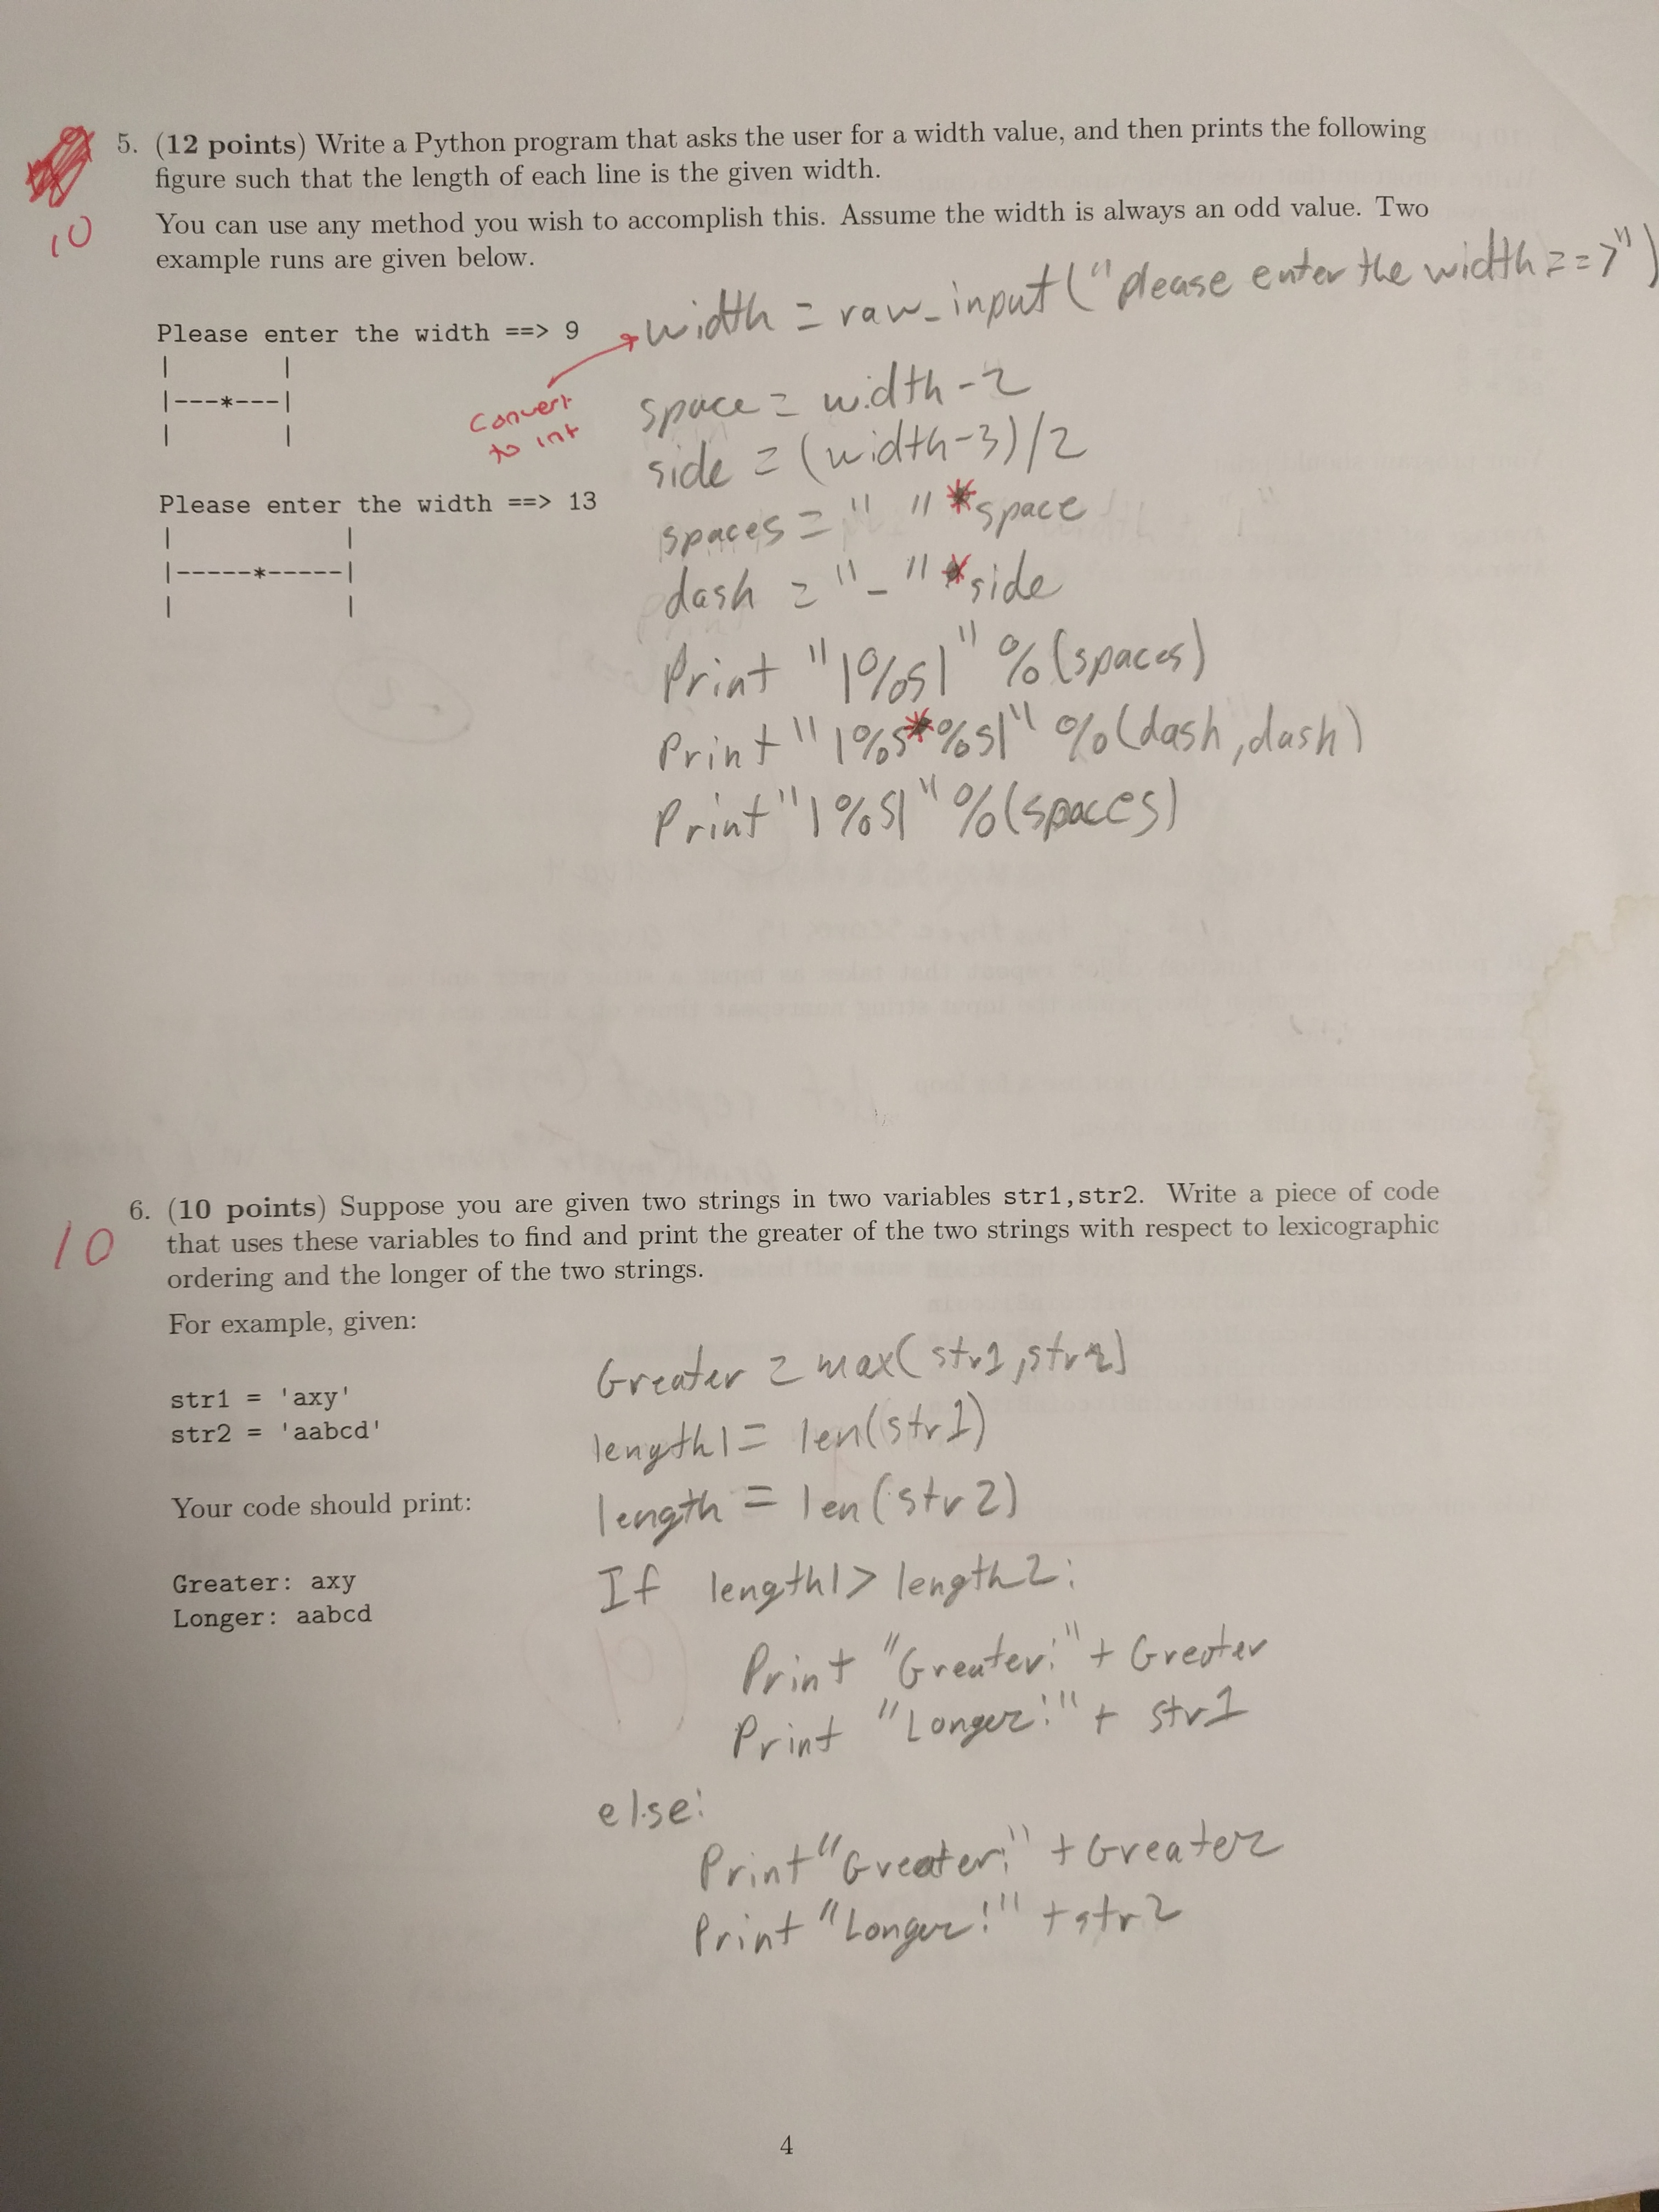 5. (12 points) Write a Python program that asks the user for a width value, and then prints the following
figure such that the length of each line is the given width.
10
You can use any method you wish to accomplish this. Assume the width is always an odd value. Two
example runs are given below.
Please enter the width ==> 9
|       |
|---*---|
|       |
Please enter the width ==> 13
|           |
|-----*-----|
|           |
convert
to int
width = raw_input("please enter the width ==>")
space = width-2
side = (width-3)/2
spaces = " " *space
dash = "-" *side
Print "|%s|" %(spaces)
Print "|%s*%s|" %(dash,dash)
Print "|%s|" %(spaces)
10
6. (10 points) Suppose you are given two strings in two variables str1,str2. Write a piece of code
that uses these variables to find and print the greater of the two strings with respect to lexicographic
ordering and the longer of the two strings.
For example, given:
str1 = 'axy'
str2 = 'aabcd'
Your code should print:
Greater: axy
Longer: aabcd
Greater = max(str1,str2)
length1 = len(str1)
length = len(str2)
If length1> length2:
Print "Greater:" + Greater
Print "Longer:" + str1
else:
Print "Greater:" + Greater
Print "Longer:" + str2
4